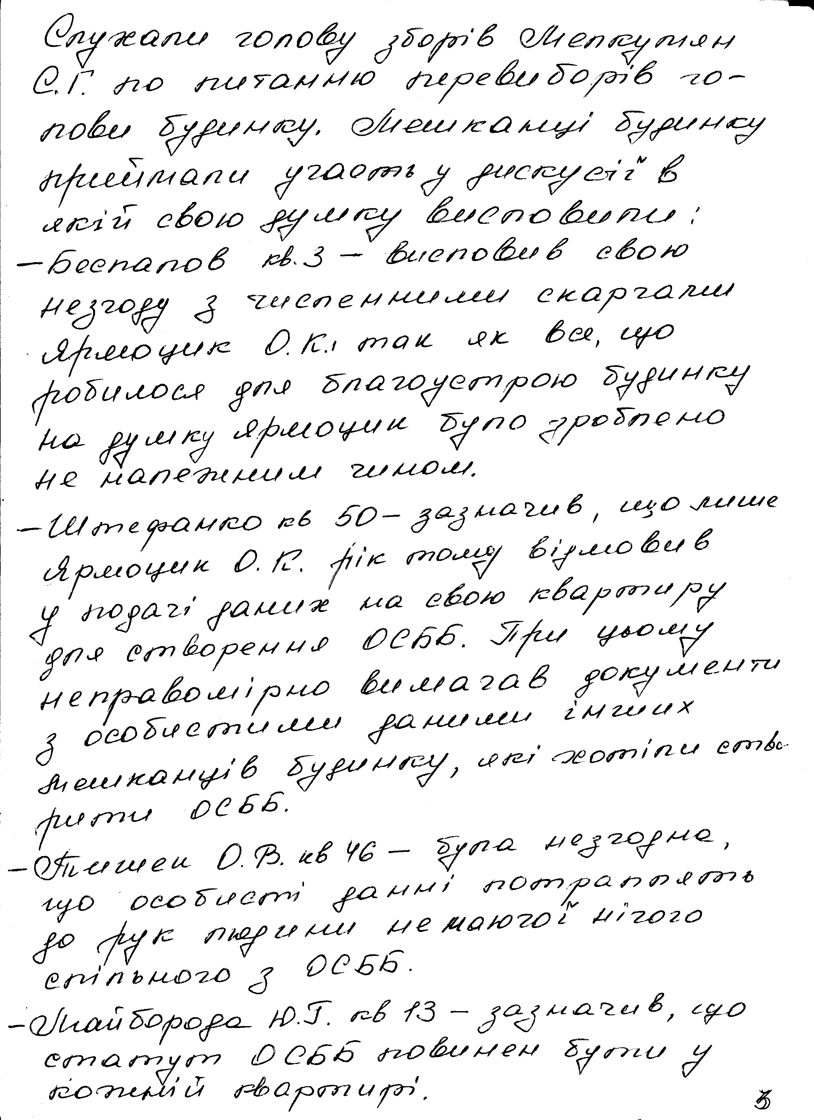 Слухали голову зборів Мелкумян
С.Г. по питанню перевиборів го-
лови будинку. Мешканці будинку
приймали участь у дискусії в
якій свою думку висловили:
– Беспалов кв. 3 – висловив свою
незгоду з численними скаргами
Ярмоцик О.К., так як все, що
робилося для благоустрою будинку
на думку Ярмоцик було зроблено
не належним чином.
– Штефанко кв 50 – зазначив, що лише
Ярмоцик О.К. рік тому відмовив
у подачі даних на свою квартиру
для створення ОСББ. При цьому
неправомірно вимагав документи
з особистими даними інших
мешканців будинку, які хотіли ство
рити ОСББ.
– Тишек О.В. кв 46 – була незгодна,
що особисті данні потраплять
до рук людини немаючої нічого
спільного з ОСББ.
– Майборода Ю.Г. кв 13 – зазначив, що
статут ОСББ повинен бути у
кожній квартирі.
3